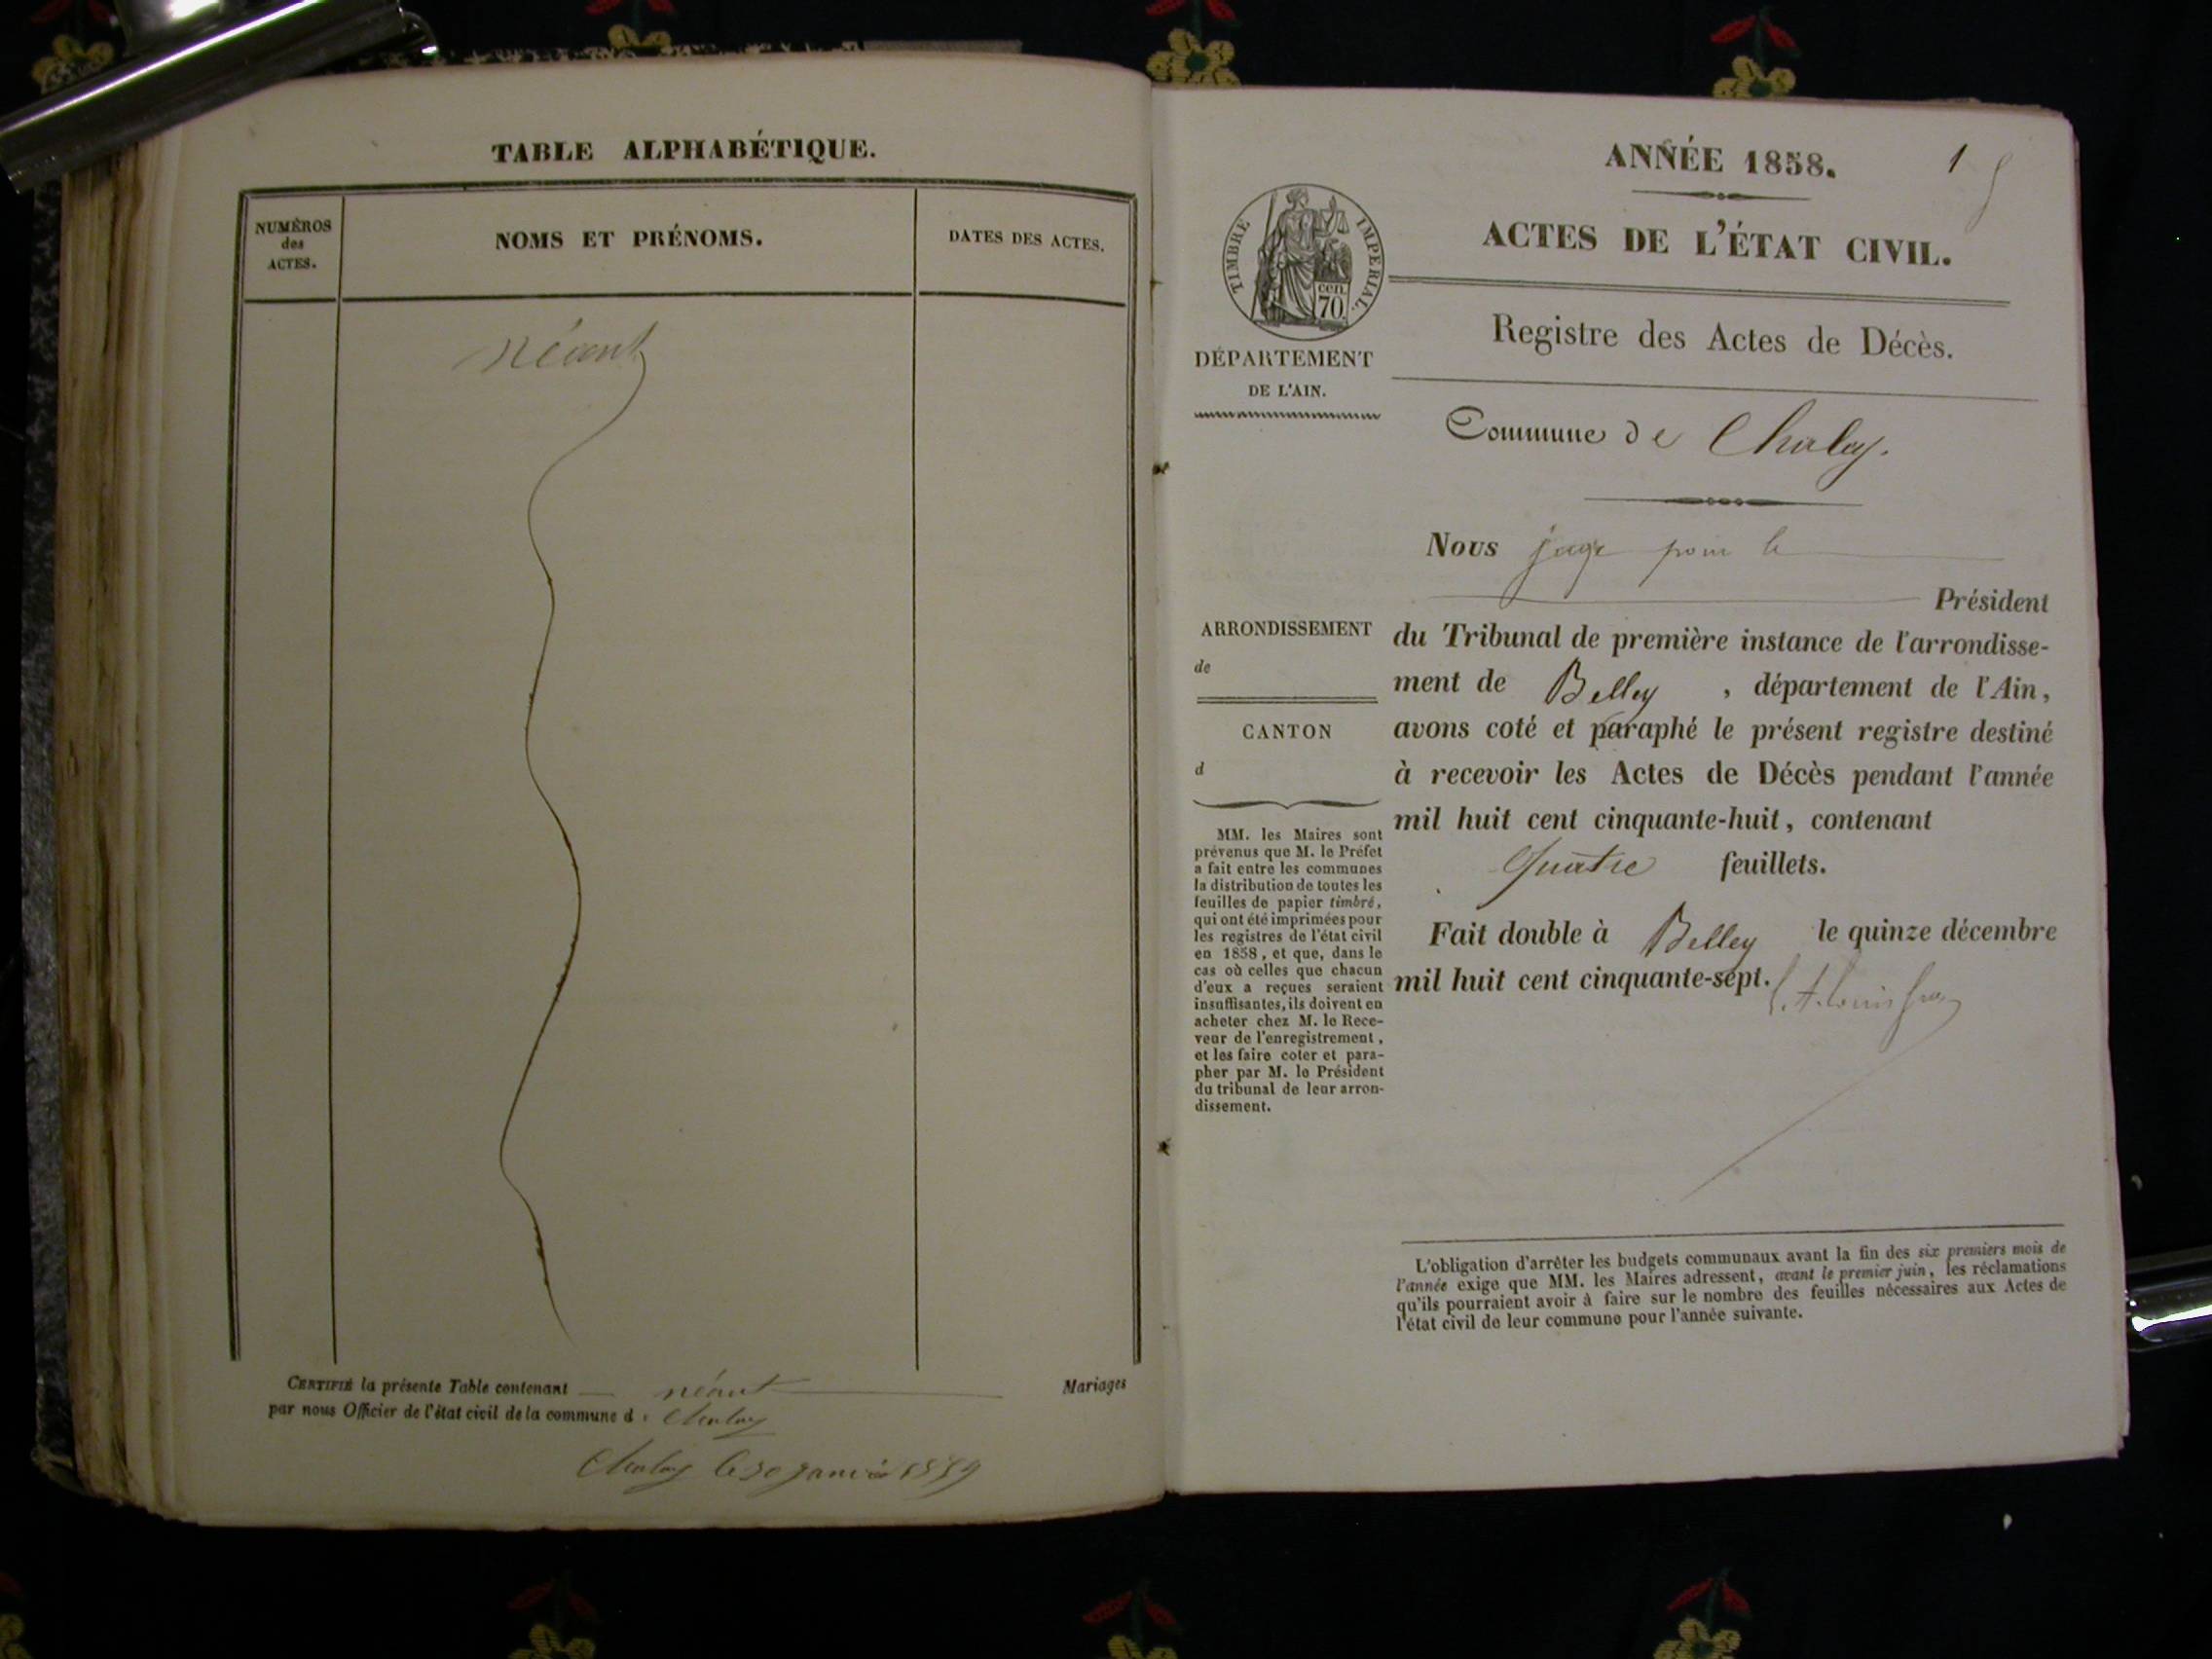 TABLE ALPHABÉTIQUE.
NUMÉROS
des
ACTES.
NOMS ET PRÉNOMS.
DATES DES ACTES.
néant
CERTIFIÉ la présente Table contenant néant Mariages
par nous Officier de l'état civil de la commune d Chaley
Chaley le 30 janvier 1859
ANNÉE 1858.
1
ACTES DE L'ÉTAT CIVIL.
TIMBRE IMPERIAL.
cen.
70
DÉPARTEMENT
DE L'AIN.
Registre des Actes de Décès.
Commune de Chaley.
Nous juge pour le
Président
du Tribunal de première instance de l'arrondisse-
ment de Belley, département de l'Ain,
avons coté et paraphé le présent registre destiné
à recevoir les Actes de Décès pendant l'année
mil huit cent cinquante-huit, contenant
Quatre feuillets.
Fait double à Belley le quinze décembre
mil huit cent cinquante-sept.
ARRONDISSEMENT
de
CANTON
d
MM. les Maires sont
prévenus que M. le Préfet
a fait entre les communes
la distribution de toutes les
feuilles de papier timbré,
qui ont été imprimées pour
les registres de l'état civil
en 1858, et que, dans le
cas où celles que chacun
d'eux a reçues seraient
insuffisantes, ils doivent en
acheter chez M. le Rece-
veur de l'enregistrement,
et les faire coter et para-
pher par M. le Président
du tribunal de leur arron-
dissement.
L'obligation d'arrêter les budgets communaux avant la fin des six premiers mois de
l'année exige que MM. les Maires adressent, avant le premier juin, les réclamations
qu'ils pourraient avoir à faire sur le nombre des feuilles nécessaires aux Actes de
l'état civil de leur commune pour l'année suivante.